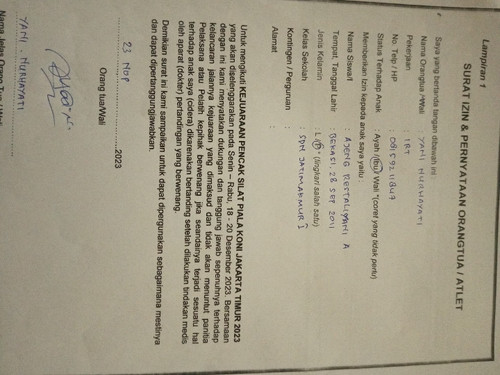 Lampiran 1
SURAT IZIN & PERNYATAAN ORANGTUA / ATLET
Saya yang bertanda tangan dibawah ini :
Nama Orangtua /Wali : YANI NURHAYATI
Pekerjaan : IRT
No. Telp / HP
Status Terhadap Anak : Ayah / Ibu / Wali *(coret yang tidak perlu)
Memberikan Izin kepada anak saya yaitu :
Nama Siswa/i : AJENG RESTALIYANI A
Tempat, Tanggal Lahir : BEKASI, 28 SEP 2011
Jenis Kelamin : L / P * (lingkari salah satu)
Kelas Sekolah : SDN JATIMAKMUR I
Kontingen / Perguruan :
Alamat :
Untuk mengikuti KEJUARAAN PENCAK SILAT PIALA KONI JAKARTA TIMUR 2023
yang akan diselenggarakan pada Senin – Rabu, 18 - 20 Desember 2023. Bersamaan
dengan ini kami menyatakan dukungan dan tanggung jawab sepenuhnya terhadap
kelancaran jalannya kejuaraan yang dimaksud dan tidak akan menuntut panitia
Pelaksana atau Pelatih kepihak berwenang jika seandainya terjadi sesuatu hal
terhadap anak saya (cidera) dikarenakan bertanding setelah dilakukan tindakan medis
oleh aparat (dokter) pertandingan yang berwenang.
Demikian surat ini kami sampaikan untuk dapat dipergunakan sebagaimana mestinya
dan dapat dipertanggungjawabkan.
23 Nop 2023
Orang tua/Wali
YANI. NURHAYATI
Nama Jelas Orang Tua / Wali